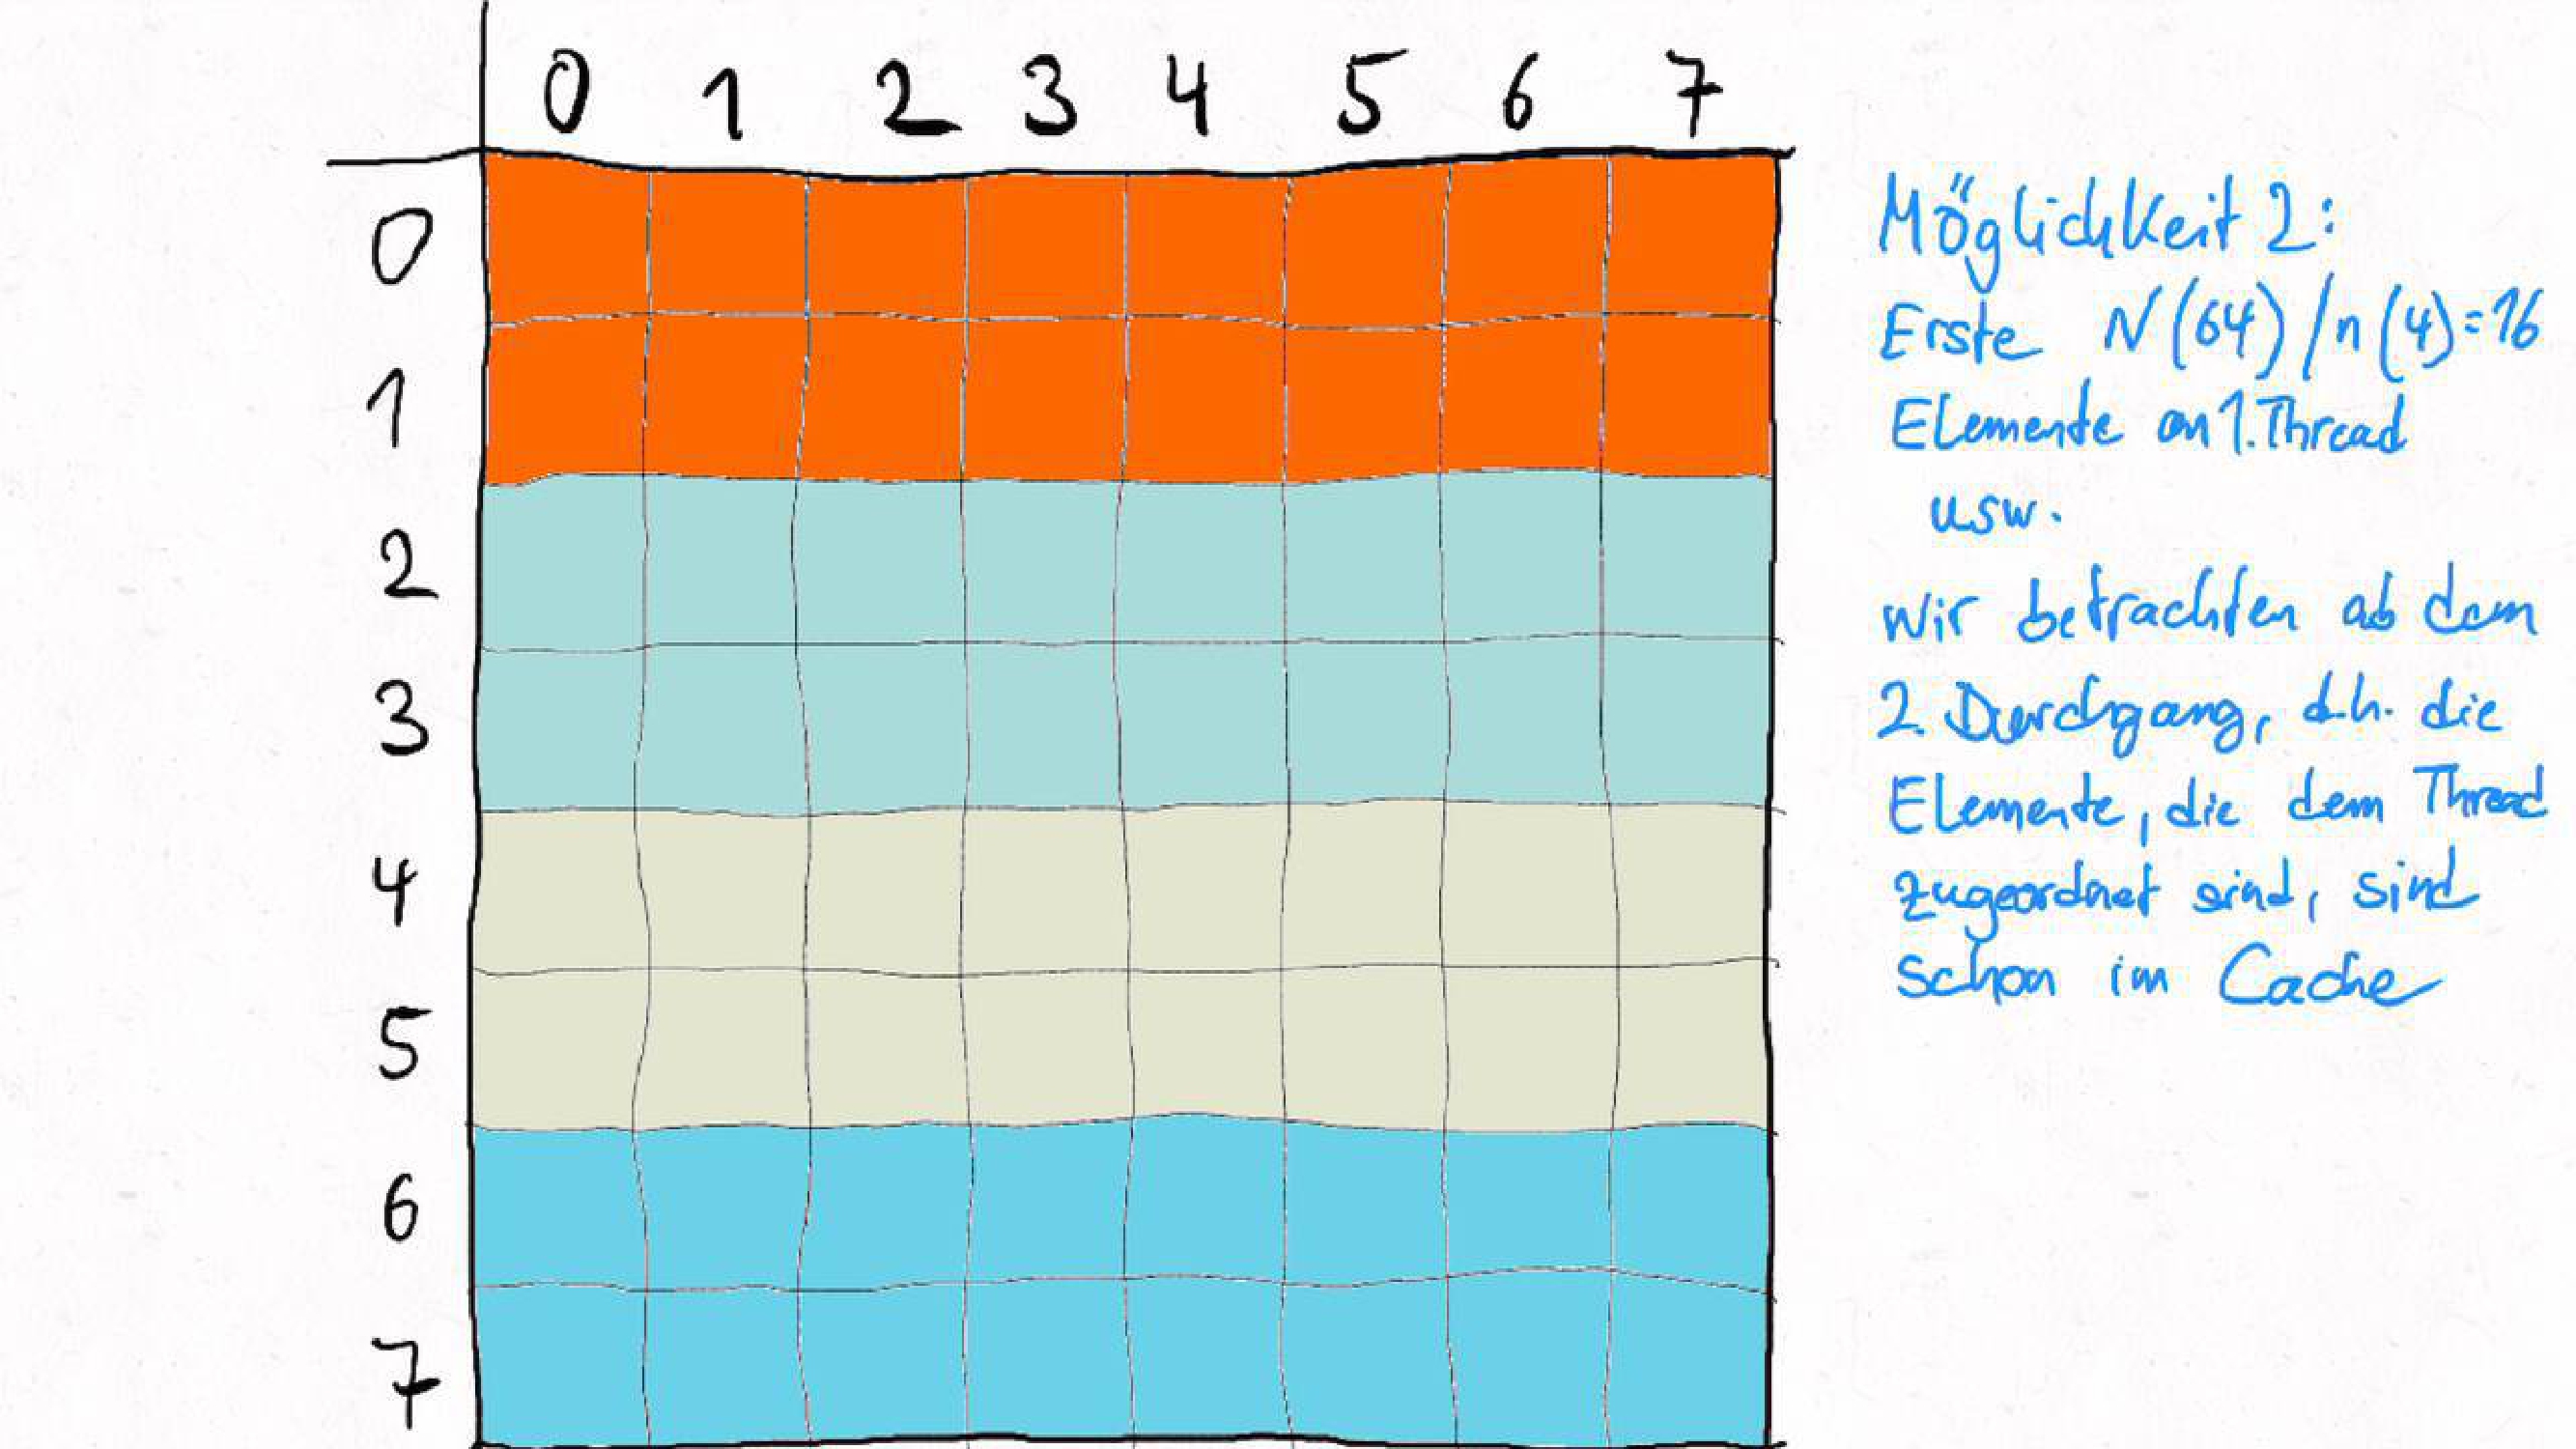 0 1 2 3 4 5 6 7
0
1
2
3
4
5
6
7
Möglichkeit 2:
Erste N(64)/n(4)=16
Elemente an 1. Thread
usw.
wir betrachten ab dem
2. Durchgang, d.h. die
Elemente, die dem Thread
zugeordnet sind, sind
schon im Cache